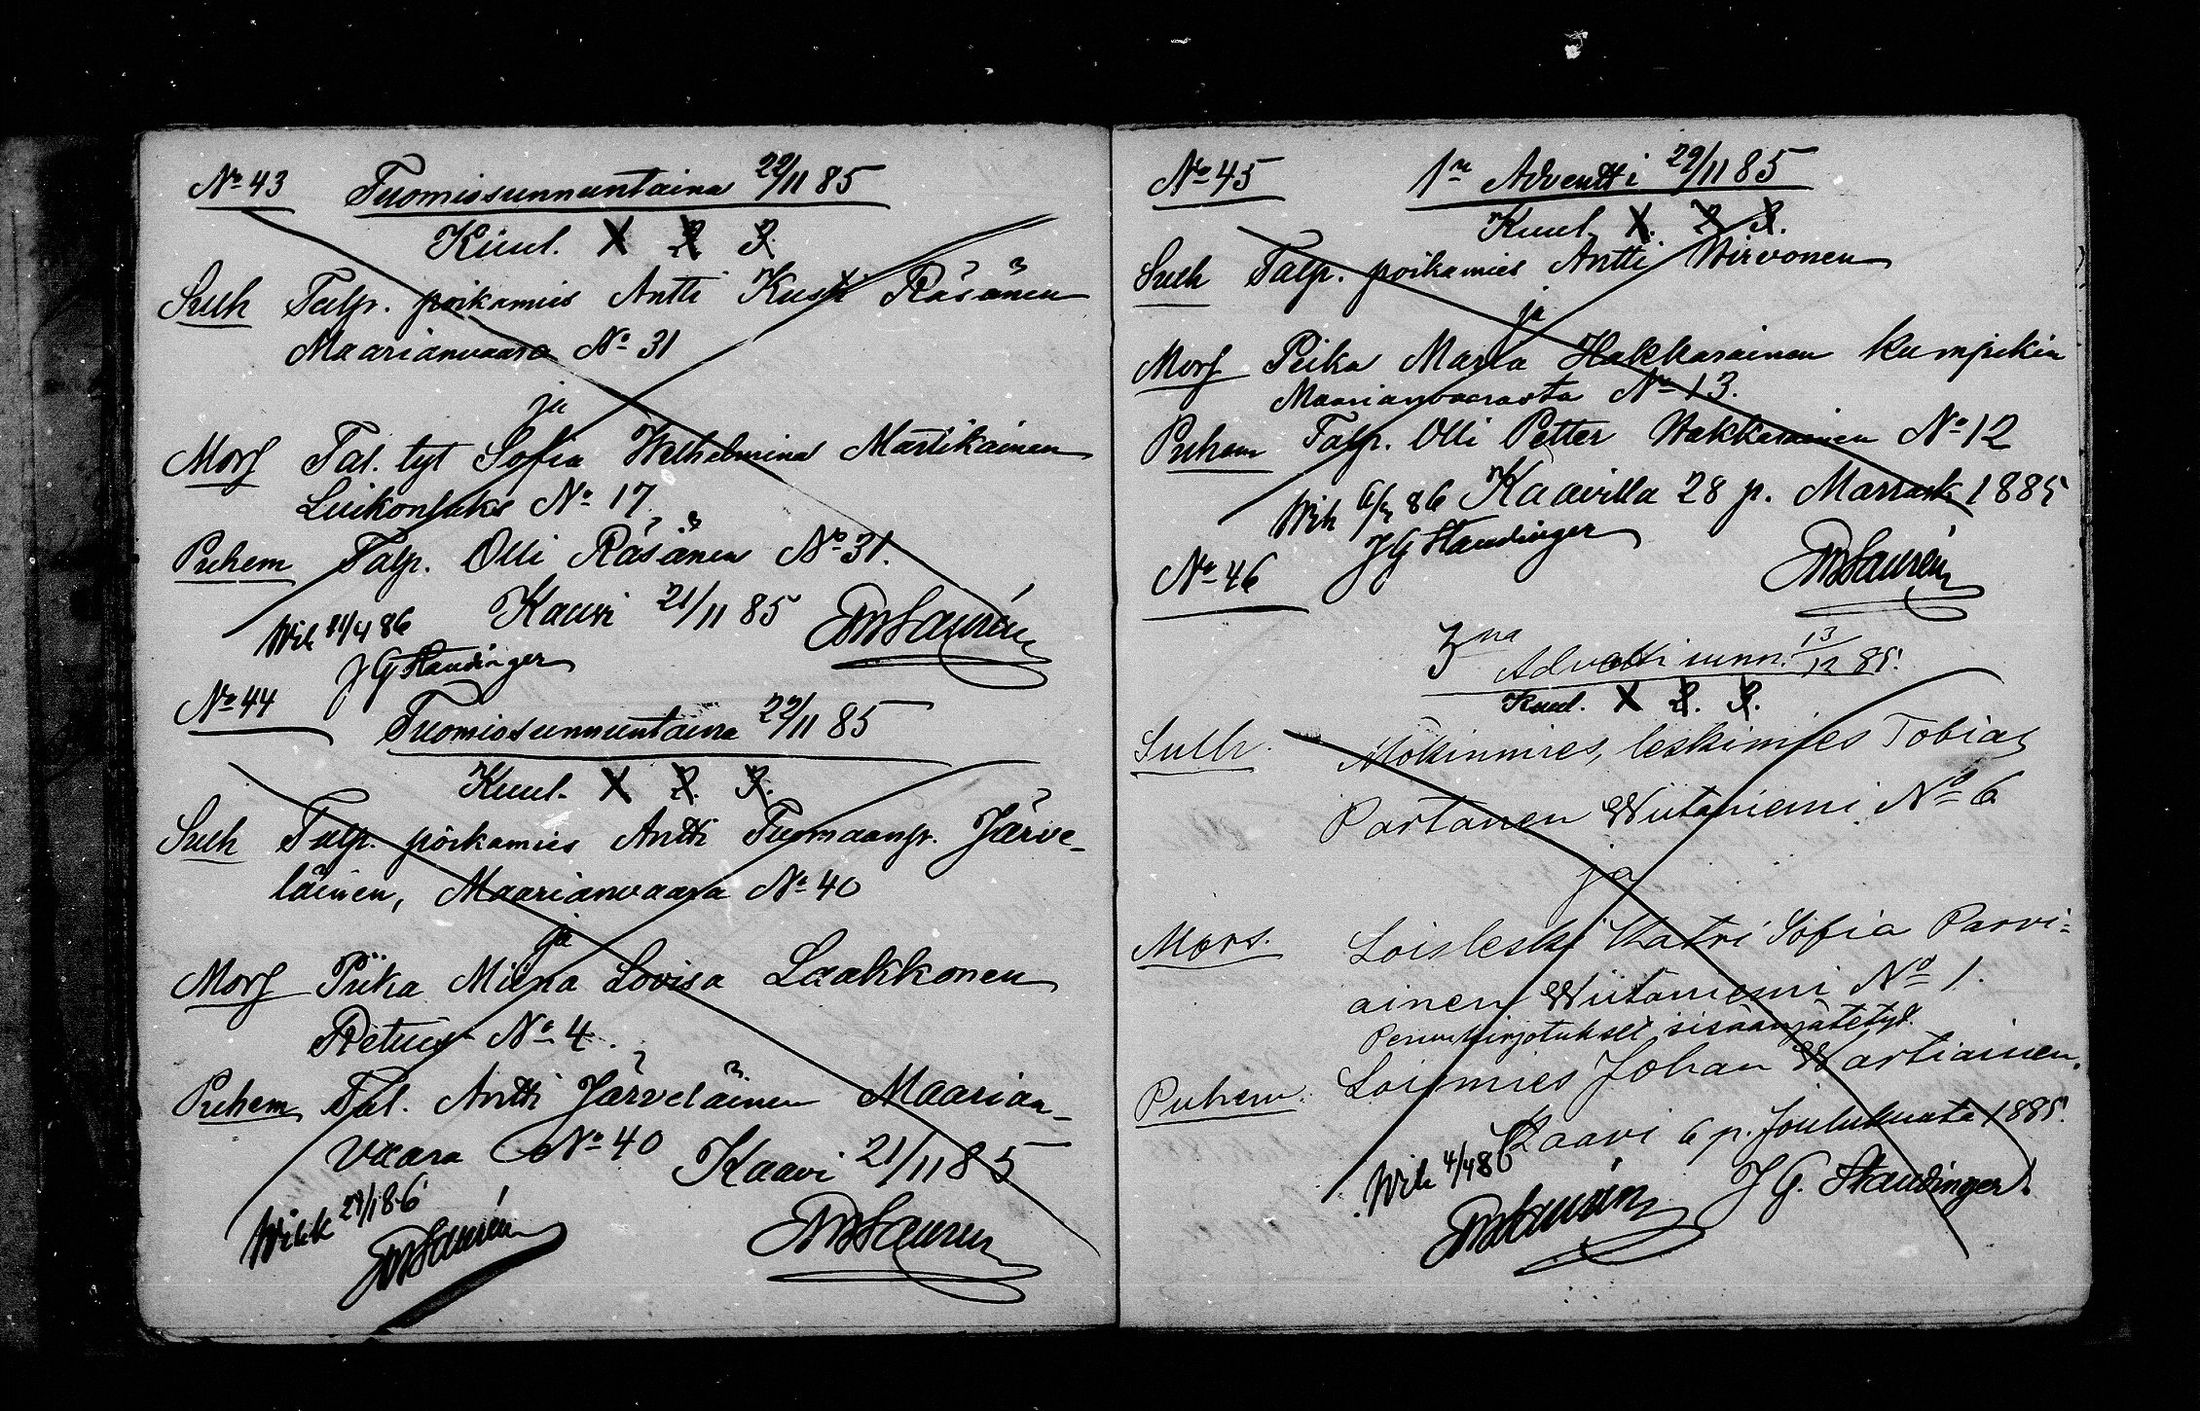 No 43 Tuomiosunnuntaina 22/11 85
Kuul. 1. 2. 3.
Sulh Talp. poikamies Antti Kusti Räsänen
Maarianvaara No 31
ja
Mors Tal. tyt Sofia Wilhelmina Martikainen
Luikonlaks No 17
Puhem Talp. Olli Räsänen No 31.
Kaavi 21/11 85
Wih 4 86
J G Standinger
No 44
Tuomiosunnuntaina 22/11 85
Kuul. 1. 2. 3.
Sulh Talp. poikamies Antti Tuomaanp. Järve-
läinen, Maarianvaara No 40
ja
Mors Piika Miina Lovisa Laakkonen
Retuns No 4.
Puhem Tal. Antti Järveläinen Maarian-
vaara No 40 Kaavi 21/11 85
Wihk 86
No 45 1n Adventti 29/11 85
Kuul. 1. 2. 3.
Sulh Talp. poikamies Antti Hirvonen
ja
Mors Piika Maria Hakkarainen kumpikin
Maarianvaarasta No 13.
Puhem Talp. Olli Petter Hakkarainen No 12
Kaavilla 28 p. Marrask 1885
Wih 86
J G Standinger
No 46
3na
Adventti sunn. 13/12 85.
Kuul. 1. 2. 3.
Sulh. Mökinmies, leskimies Tobias
Partanen Wiitaniemi No 6
ja
Mors. Loisleski Katri Sofia Parvi-
ainen Wiitaniemi No 1.
Perunkirjotukset sisäänjätetyt.
Puhem. Loismies Johan Wartiainen.
Kaavi 6 p. Joulukuuta 1885.
Wih 4/4 86
J G. Standinger.